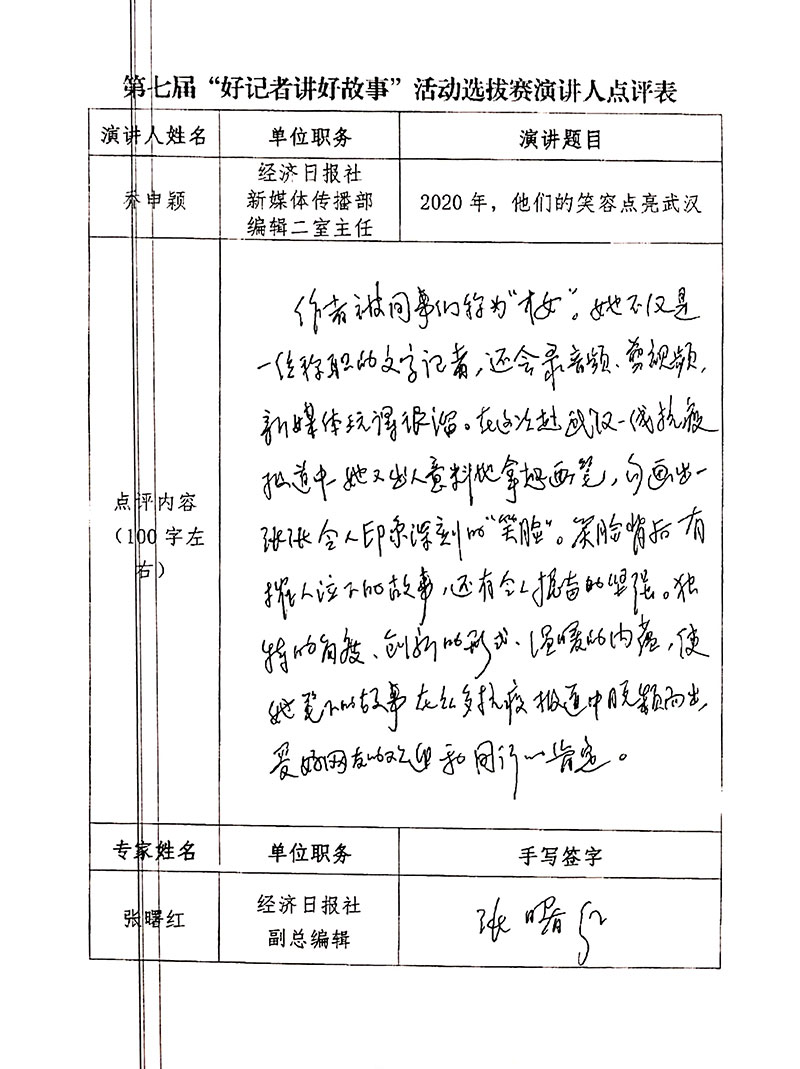 第七届“好记者讲好故事”活动选拔赛演讲人点评表
演讲人姓名 单位职务 演讲题目
乔申颖 经济日报社 新媒体传播部 编辑二室主任 2020 年，他们的笑容点亮武汉
点评内容（100 字左右）
作者被同事们称为“才女”。她不仅是
一位称职的文字记者，还会录音频、剪视频，
新媒体玩得很溜。在这次赴武汉一线抗疫
报道中，她又出人意料地拿起画笔，勾画出一
张张令人印象深刻的“笑脸”。笑脸背后有
催人泪下的故事，还有令人振奋的坚强。独
特的角度、创新的形式、温暖的内蕴，使
她笔下的故事在众多抗疫报道中脱颖而出，
受好网友的欢迎和同行的肯定。
专家姓名 单位职务 手写签字
张曙红 经济日报社 副总编辑 张曙红